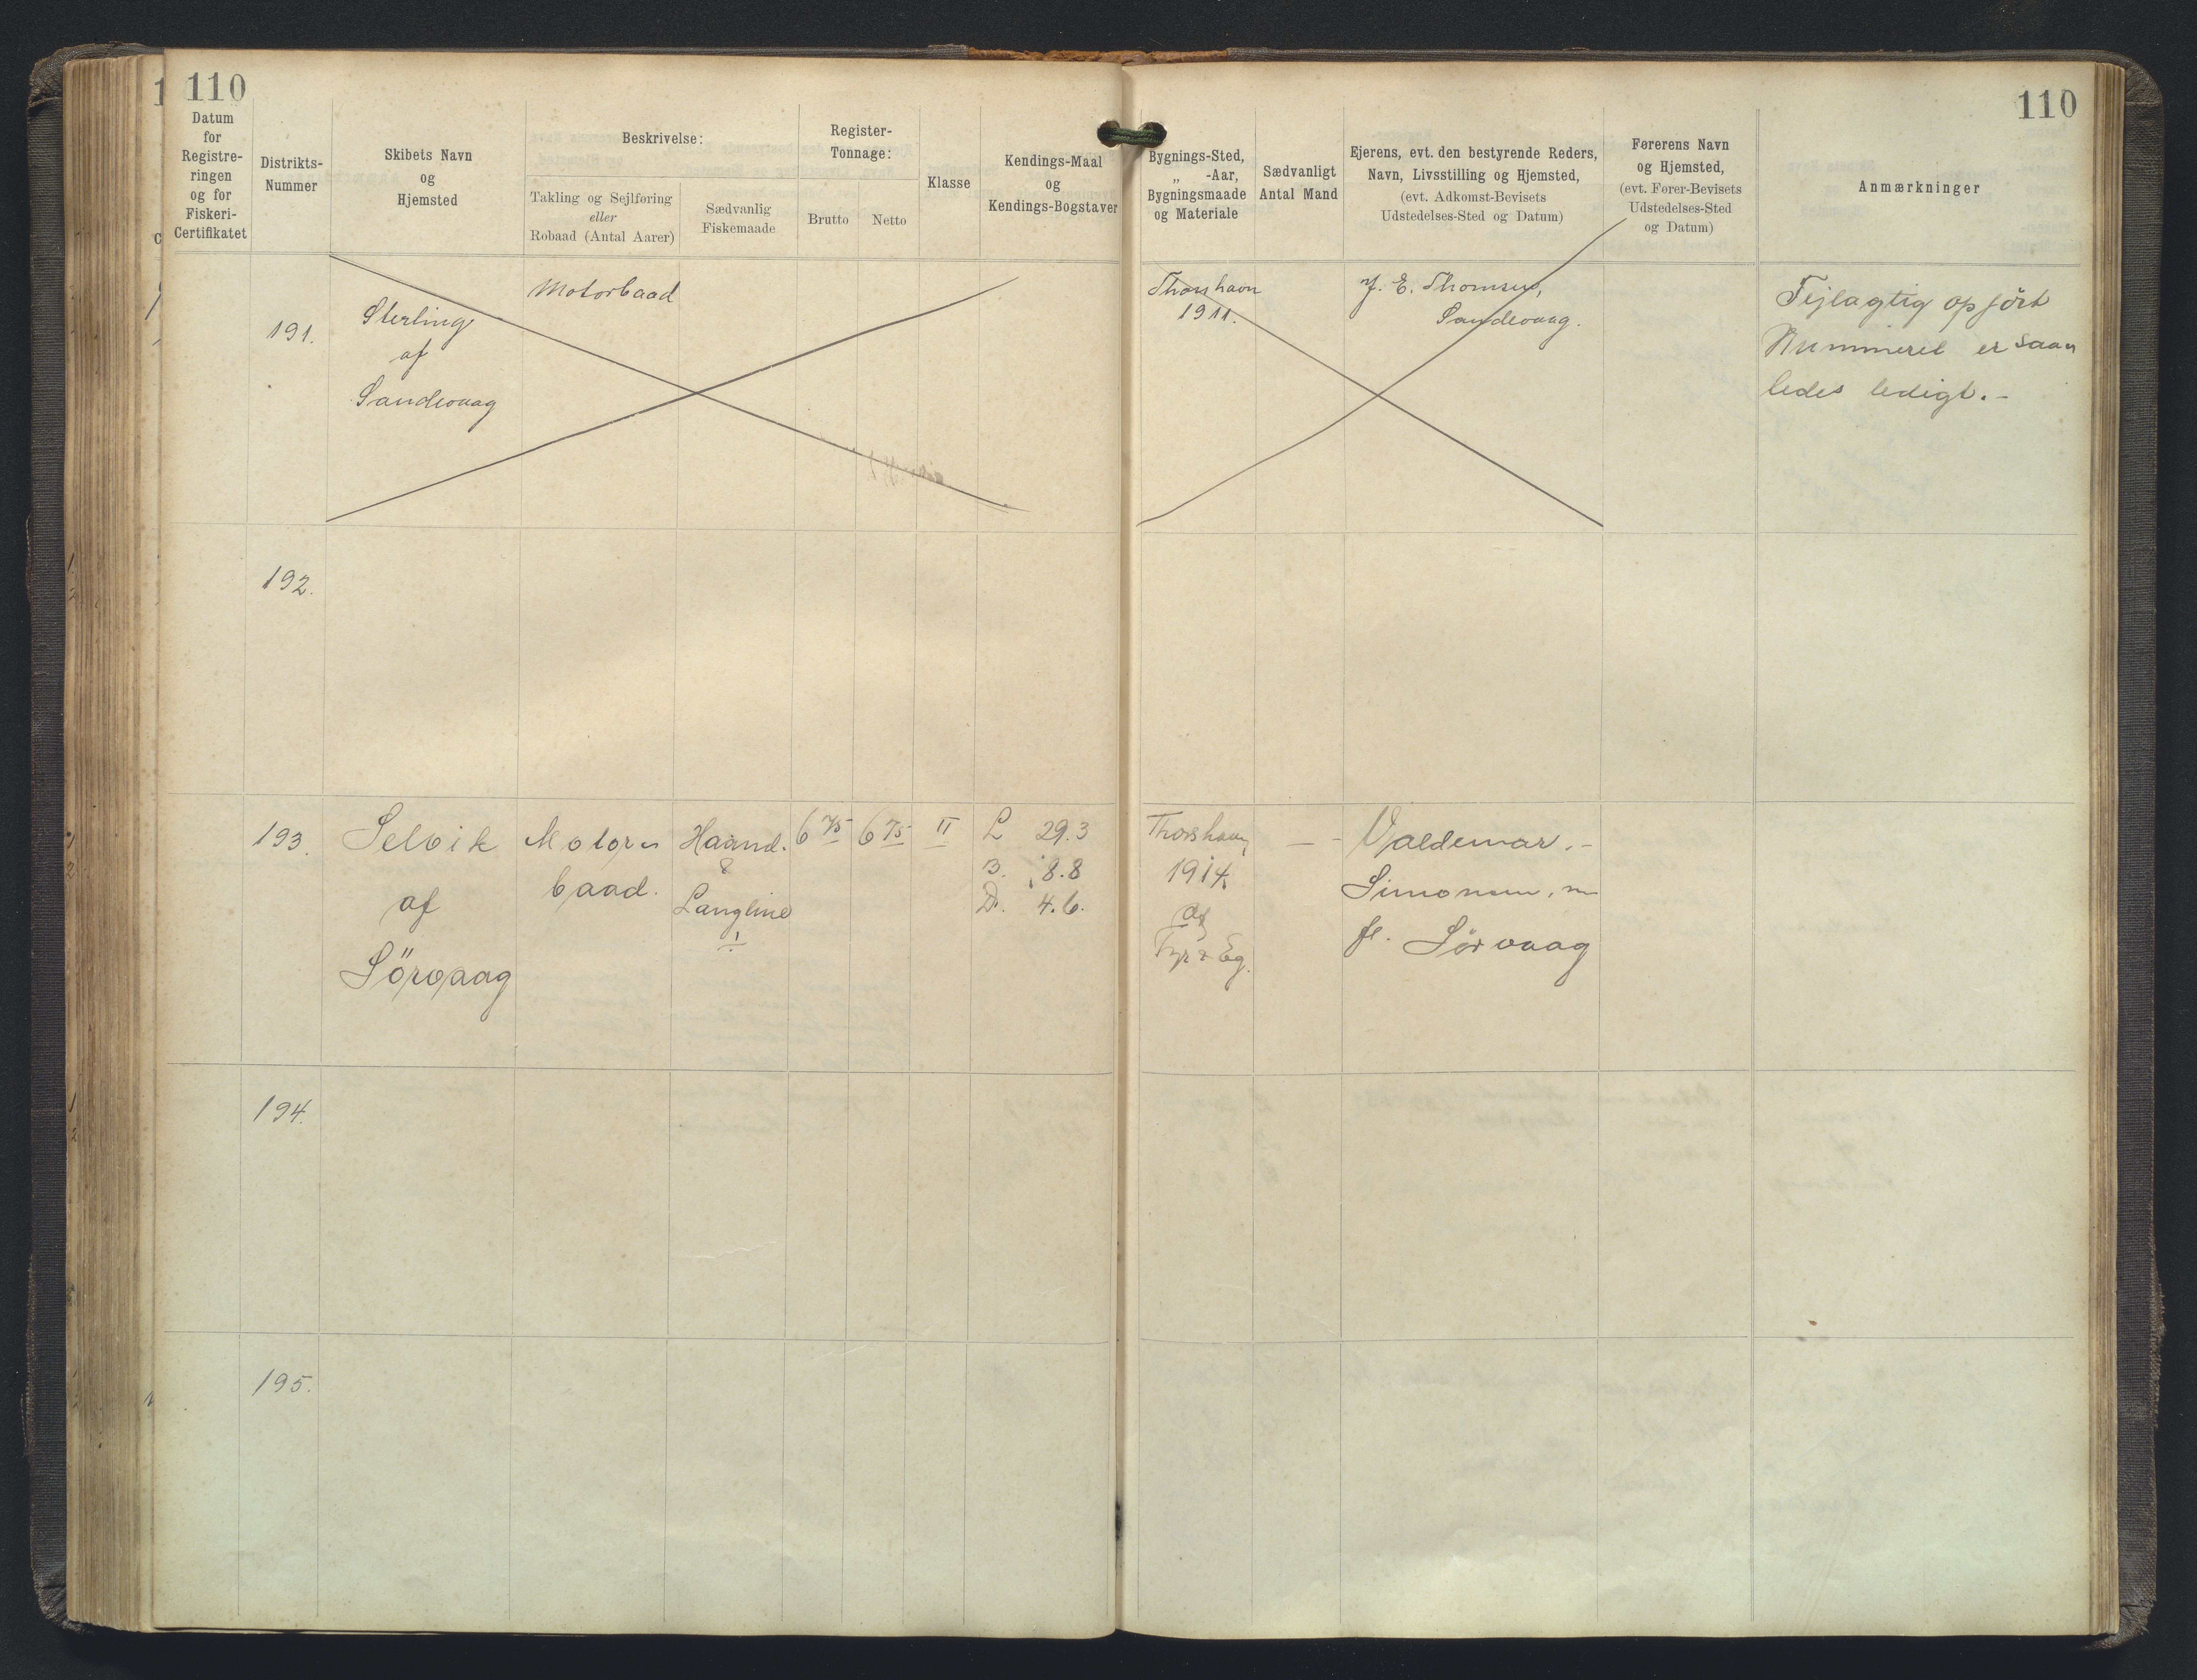 110
110
Datum
for
Registre-
ringen
og for
Fiskeri-
Certifikatet
Distrikts-
Nummer
Skibets Navn
og
Hjemsted
Beskrivelse:
Takling og Sejlføring
eller
Robaad (Antal Aarer)
Sædvanlig
Fiskemaade
Register-
Tonnage:
Brutto
Netto
Klasse
Kendings-Maal
og
Kendings-Bogstaver
Bygnings-Sted,
„ -Aar,
Bygningsmaade
og Materiale
Sædvanligt
Antal Mand
Ejerens, evt. den bestyrende Reders,
Navn, Livsstilling og Hjemsted,
(evt. Adkomst-Bevisets
Udstedelses-Sted og Datum)
Førerens Navn
og Hjemsted,
(evt. Fører-Bevisets
Udstedelses-Sted
og Datum)
Anmærkninger
191.
Sterling
af
Sandevaag
Motorbaad
Thorshavn
1911.
J. E. Thomsen,
Sandevaag.
Fejlagtig opført
Nummeret er saa„
ledes ledigt.-
192.
193.
Selvik
af
Sörvaag
Motor„
baad.
Haand.
&
Langline
6 75
6 75
II
L 29.3
B. 8.8
D. 4.6.
Thorshavn
1914
af
Fyr & Eg.
—
Valdemar.-
Simonsen, m
fl. Sörvaag
194.
195.